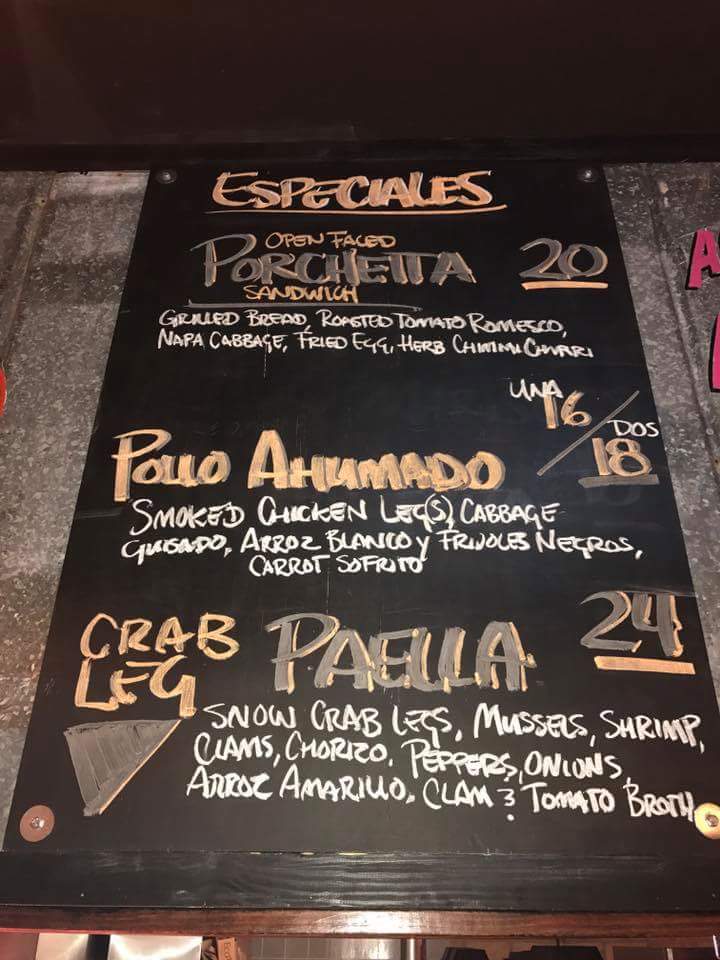 ESPECIALES
OPEN FACED
PORCHETTA 20
SANDWICH
GRILLED BREAD, ROASTED TOMATO ROMESCO,
NAPA CABBAGE, FRIED EGG, HERB CHIMICHURRI
UNA 16 / DOS 18
POLLO AHUMADO
SMOKED CHICKEN LEG(S), CABBAGE
GUISADO, ARROZ BLANCO Y FRIJOLES NEGROS,
CARROT SOFRITO
CRAB LEG PAELLA 24
SNOW CRAB LEGS, MUSSELS, SHRIMP,
CLAMS, CHORIZO, PEPPERS, ONIONS,
ARROZ AMARILLO, CLAM & TOMATO BROTH